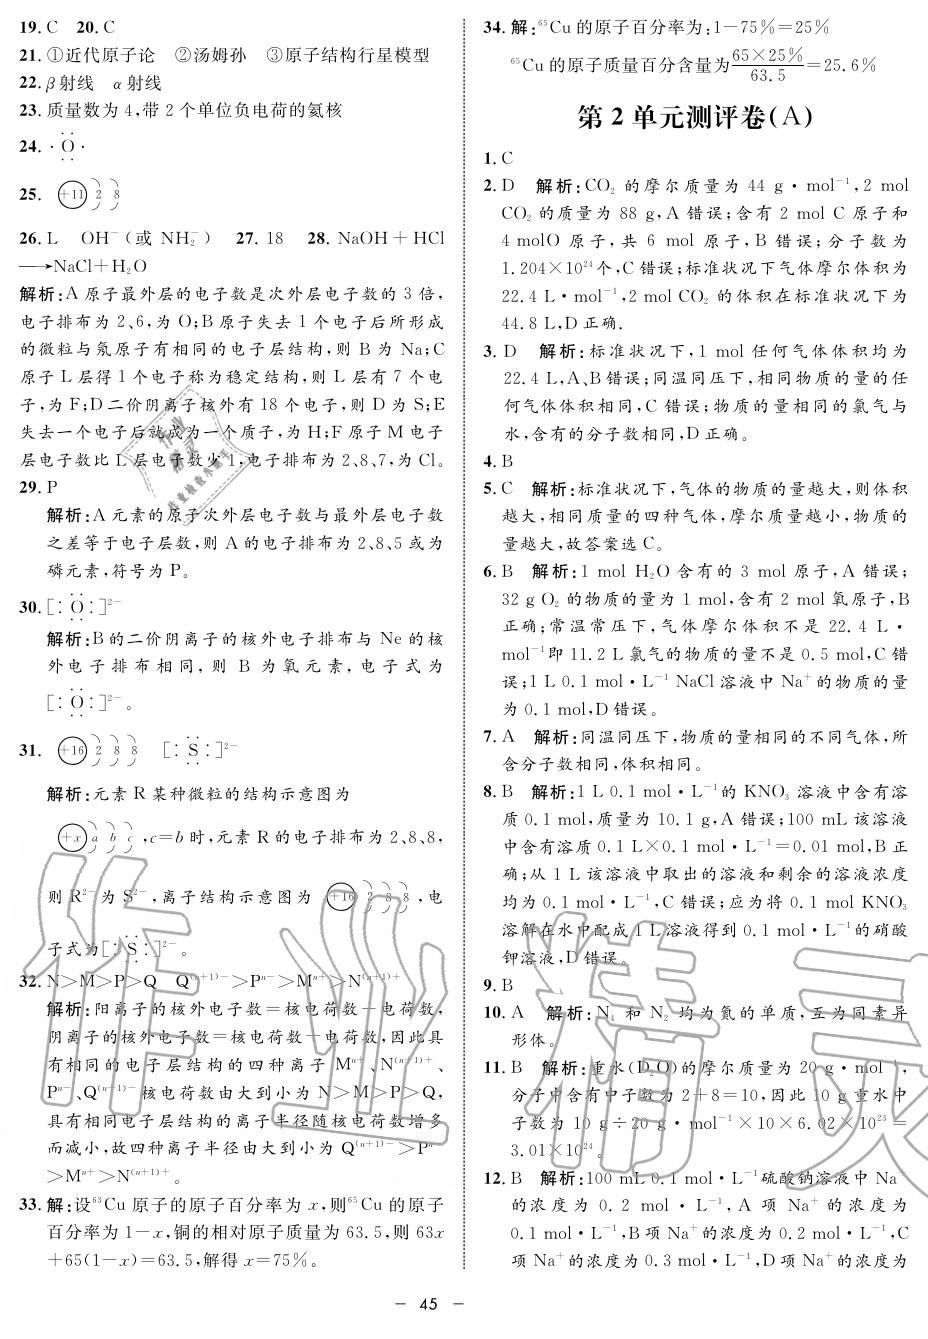 19. C　20. C
21. ①近代原子论　②汤姆孙　③原子结构行星模型
22. β射线　α射线
23. 质量数为 4,带 2 个单位负电荷的氦核
24. ·O·
25. +11 2 8
26. L　OH⁻(或 NH₂⁻)　27. 18　28. NaOH+HCl
⟶NaCl+H₂O
解析:A 原子最外层的电子数是次外层电子数的 3 倍,
电子排布为 2、6,为 O;B 原子失去 1 个电子后所形成
的微粒与氖原子有相同的电子层结构,则 B 为 Na;C
原子 L 层得 1 个电子称为稳定结构,则 L 层有 7 个电
子,为 F;D 二价阴离子核外有 18 个电子,则 D 为 S;E
失去一个电子后就成为一个质子,为 H;F 原子 M 电子
层电子数比 L 层电子数少 1,电子排布为 2、8、7,为 Cl。
29. P
解析:A 元素的原子次外层电子数与最外层电子数
之差等于电子层数,则 A 的电子排布为 2、8、5 或为
磷元素,符号为 P。
30. [:O:]²⁻
解析:B 的二价阴离子的核外电子排布与 Ne 的核
外电子排布相同,则 B 为氧元素,电子式为
[:O:]²⁻。
31. +16 2 8 8　[:S:]²⁻
解析:元素 R 某种微粒的结构示意图为
+x a b c,c=b 时,元素 R 的电子排布为 2、8、8,
则 R²⁻ 为 S²⁻,离子结构示意图为 +16 2 8 8,电
子式为[:S:]²⁻。
32. N>M>P>Q　Q⁽ⁿ⁺¹⁾⁻>Pⁿ⁻>Mⁿ⁺>N⁽ⁿ⁺¹⁾⁺
解析:阳离子的核外电子数=核电荷数-电荷数,
阴离子的核外电子数=核电荷数+电荷数,因此具
有相同的电子层结构的四种离子 Mⁿ⁺、N⁽ⁿ⁺¹⁾⁺、
Pⁿ⁻、Q⁽ⁿ⁺¹⁾⁻ 核电荷数由大到小为 N>M>P>Q,
具有相同电子层结构的离子半径随核电荷数增多
而减小,故四种离子半径由大到小为 Q⁽ⁿ⁺¹⁾⁻>Pⁿ⁻
>Mⁿ⁺>N⁽ⁿ⁺¹⁾⁺。
33. 解:设⁶³Cu 原子的原子百分率为 x,则⁶⁵Cu 的原子
百分率为 1-x,铜的相对原子质量为 63.5,则 63x
+65(1-x)=63.5,解得 x=75%。
34. 解:⁶⁵Cu 的原子百分率为:1-75%=25%
⁶⁵Cu 的原子质量百分含量为 65×25%/63.5=25.6%
第 2 单元测评卷(A)
1. C
2. D　解析:CO₂ 的摩尔质量为 44 g·mol⁻¹,2 mol
CO₂ 的质量为 88 g,A 错误;含有 2 mol C 原子和
4 molO 原子,共 6 mol 原子,B 错误;分子数为
1.204×10²⁴个,C 错误;标准状况下气体摩尔体积为
22.4 L·mol⁻¹,2 mol CO₂ 的体积在标准状况下为
44.8 L,D 正确.
3. D　解析:标准状况下,1 mol 任何气体体积均为
22.4 L,A、B 错误;同温同压下,相同物质的量的任
何气体体积相同,C 错误;物质的量相同的氯气与
水,含有的分子数相同,D 正确。
4. B
5. C　解析:标准状况下,气体的物质的量越大,则体积
越大,相同质量的四种气体,摩尔质量越小,物质的
量越大,故答案选 C。
6. B　解析:1 mol H₂O 含有的 3 mol 原子,A 错误;
32 g O₂ 的物质的量为 1 mol,含有 2 mol 氧原子,B
正确;常温常压下,气体摩尔体积不是 22.4 L·
mol⁻¹即 11.2 L 氯气的物质的量不是 0.5 mol,C 错
误;1 L 0.1 mol·L⁻¹ NaCl 溶液中 Na⁺ 的物质的量
为 0.1 mol,D 错误。
7. A　解析:同温同压下,物质的量相同的不同气体,所
含分子数相同,体积相同。
8. B　解析:1 L 0.1 mol·L⁻¹的 KNO₃ 溶液中含有溶
质 0.1 mol,质量为 10.1 g,A 错误;100 mL 该溶液
中含有溶质 0.1 L×0.1 mol·L⁻¹=0.01 mol,B 正
确;从 1 L 该溶液中取出的溶液和剩余的溶液浓度
均为 0.1 mol·L⁻¹,C 错误;应为将 0.1 mol KNO₃
溶解在水中配成 1 L 溶液得到 0.1 mol·L⁻¹的硝酸
钾溶液,D 错误。
9. B
10. A　解析:N₄ 和 N₂ 均为氮的单质,互为同素异
形体。
11. B　解析:重水(D₂O)的摩尔质量为 20 g·mol⁻¹,
分子中含有中子数为 2+8=10,因此 10 g 重水中
子数为 10 g÷20 g·mol⁻¹×10×6.02×10²³=
3.01×10²⁴。
12. B　解析:100 mL 0.1 mol·L⁻¹硫酸钠溶液中 Na⁺
的浓度为 0.2 mol·L⁻¹,A 项 Na⁺ 的浓度为
0.1 mol·L⁻¹,B 项 Na⁺ 的浓度为 0.2 mol·L⁻¹,C
项 Na⁺ 的浓度为 0.3 mol·L⁻¹,D 项 Na⁺ 的浓度为
— 45 —
作业精灵